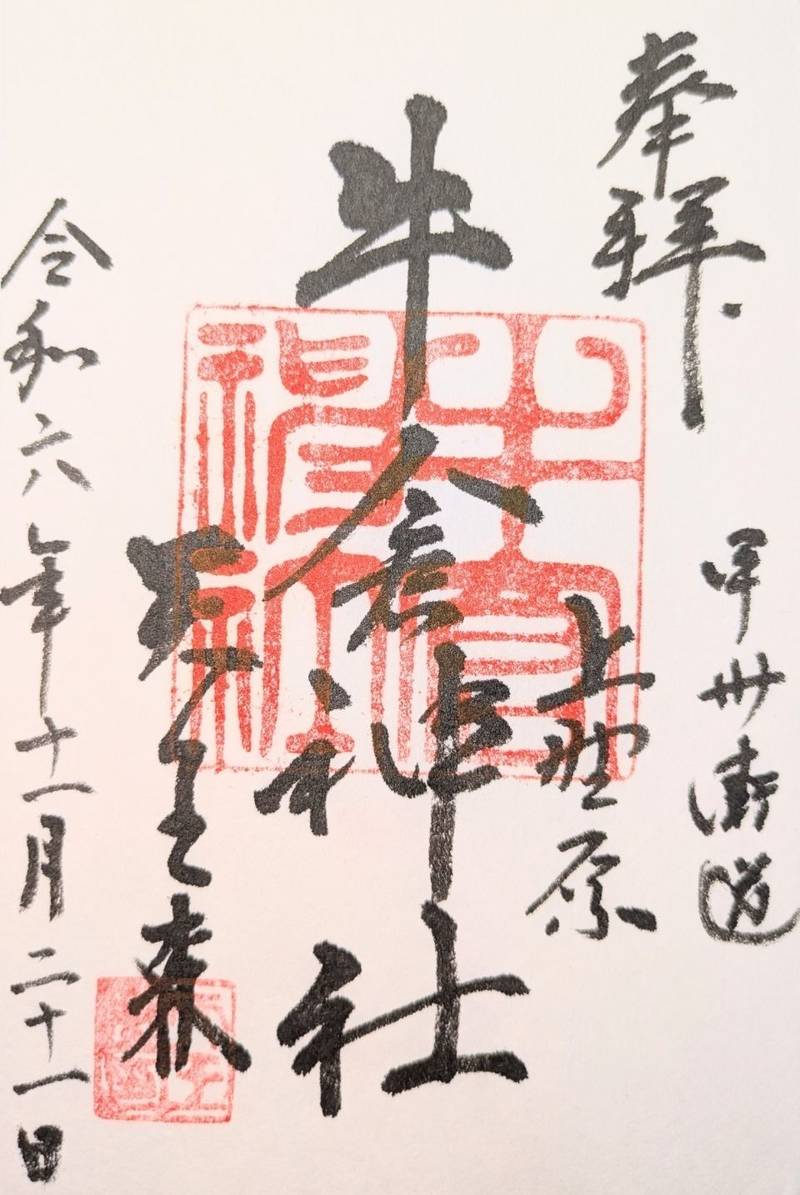 奉拝
甲州街道
上野原
牛倉神社
牛倉
神社
令和六年十一月二十一日